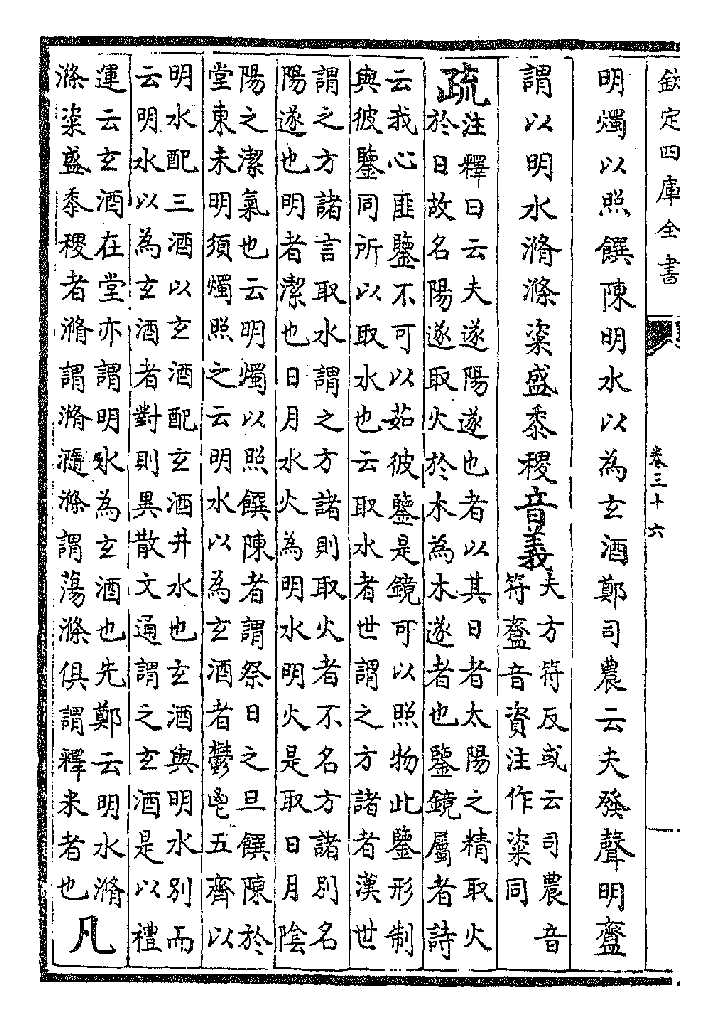 欽定四庫全書
卷三十六
明燭以照饌陳明水以為玄酒鄭司農云夫發聲明齍
謂以明水滫滌粢盛黍稷音義
夫方符反或云司農音
符齍音資注作粢同
疏
注釋曰云夫遂陽遂也者以其日者太陽之精取火
於日故名陽遂取火於木為木遂者也鑒鏡屬者詩
云我心匪鑒不可以茹彼鑒是鏡可以照物此鑒形制
與彼鑒同所以取水也云取水者世謂之方諸者漢世
謂之方諸言取水謂之方諸則取火者不名方諸別名
陽遂也明者潔也日月水火為明水明火是取日月陰
陽之潔氣也云明燭以照饌陳者謂祭日之旦饌陳於
堂東未明須燭照之云明水以為玄酒者鬱鬯五齊以
明水配三酒以玄酒配玄酒井水也玄酒與明水別而
云明水以為玄酒者對則異散文通謂之玄酒是以禮
運云玄酒在堂亦謂明水為玄酒也先鄭云明水滫
滌粢盛黍稷者滫謂滫瀡滌謂蕩滌俱謂釋米者也
凡